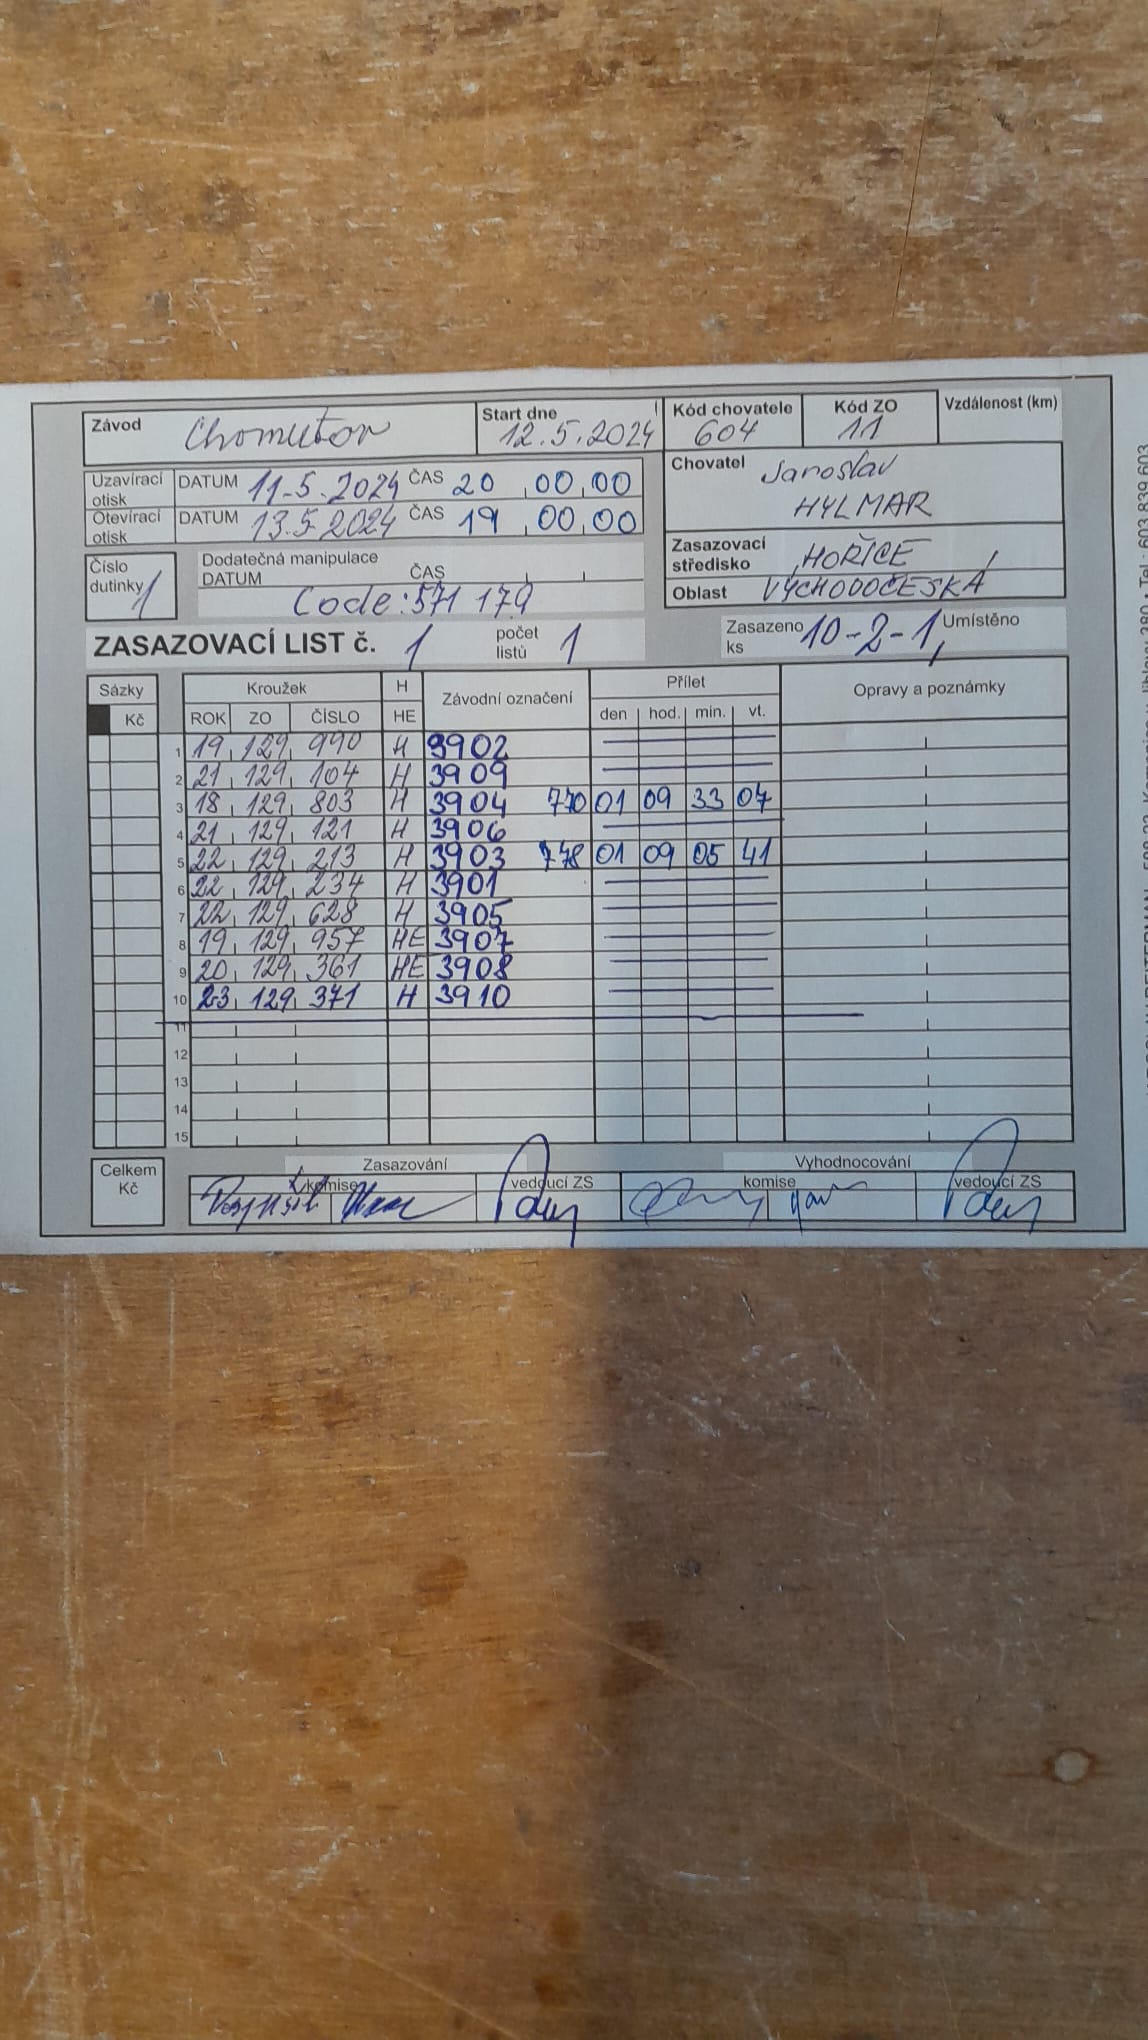 Závod Chomutov Start dne 12.5.2024 Kód chovatele 604 Kód ZO 11 Vzdálenost (km)
Uzavírací otisk DATUM 11.5.2024 ČAS 20,00,00
Otevírací otisk DATUM 13.5.2024 ČAS 19,00,00
Chovatel Jaroslav
HYLMAR
Číslo dutinky 1 Dodatečná manipulace
DATUM ČAS
Code: 571 179
Zasazovací středisko HOŘICE
Oblast VÝCHODOČESKÁ
ZASAZOVACÍ LIST č. 1 počet listů 1 Zasazeno ks 10-2-1, Umístěno
Sázky Kroužek H Závodní označení Přílet Opravy a poznámky
Kč ROK ZO ČÍSLO HE den hod. min. vt.
1 19 129 990 H 3902
2 21 129 104 H 3909
3 18 129 803 H 3904 770 01 09 33 07
4 21 129 121 H 3906
5 22 129 213 H 3903 778 01 09 05 41
6 22 129 234 H 3901
7 22 129 628 H 3905
8 19 129 957 HE 3907
9 20 129 361 HE 3908
10 23 129 371 H 3910
11
12
13
14
15
Celkem Kč Zasazování Vyhodnocování
komise vedoucí ZS komise vedoucí ZS